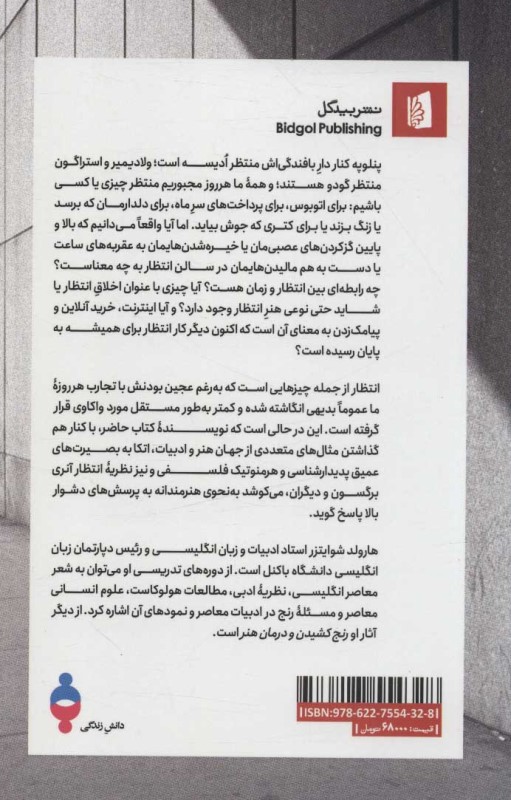 نشر بیدگل
Bidgol Publishing
پنلوپه کنار دار بافندگی‌اش منتظر اُدیسه است؛ ولادیمیر و استراگون
منتظر گودو هستند؛ و همهٔ ما هرروز مجبوریم منتظر چیزی یا کسی
باشیم: برای اتوبوس، برای پرداخت‌های سرِ ماه، برای دلدارمان که برسد
یا زنگ بزند یا برای کتری که جوش بیاید. اما آیا واقعاً می‌دانیم که بالا و
پایین گزکردن‌های عصبی‌مان یا خیره‌شدن‌هایمان به عقربه‌های ساعت
یا دست به هم مالیدن‌هایمان در سالن انتظار به چه معناست؟
چه رابطه‌ای بین انتظار و زمان هست؟ آیا چیزی با عنوان اخلاقِ انتظار یا
شاید حتی نوعی هنرِ انتظار وجود دارد؟ و آیا اینترنت، خرید آنلاین و
پیامک‌زدن به معنای آن است که اکنون دیگر کار انتظار برای همیشه به
پایان رسیده است؟
انتظار از جمله چیزهایی است که به‌رغم عجین بودنش با تجارب هرروزهٔ
ما عموماً بدیهی انگاشته شده و کمتر به‌طور مستقل مورد واکاوی قرار
گرفته است. این در حالی است که نویسندهٔ کتاب حاضر، با کنار هم
گذاشتن مثال‌های متعددی از جهان هنر و ادبیات، اتکا به بصیرت‌های
عمیق پدیدارشناسی و هرمنوتیک فلسفی و نیز نظریهٔ انتظار آنری
برگسون و دیگران، می‌کوشد به‌نحوی هنرمندانه به پرسش‌های دشوار
بالا پاسخ گوید.
هارولد شوایتزر استاد ادبیات و زبان انگلیسی و رئیس دپارتمان زبان
انگلیسی دانشگاه باکنل است. از دوره‌های تدریسی او می‌توان به شعر
معاصر انگلیسی، نظریهٔ ادبی، مطالعات هولوکاست، علوم انسانی
معاصر و مسئلهٔ رنج در ادبیات معاصر و نمودهای آن اشاره کرد. از دیگر
آثار او رنج کشیدن و درمان هنر است.
ISBN: 978-622-7554-32-8
قیمت: ۶۸۰۰۰ تومان
دانشِ زندگی